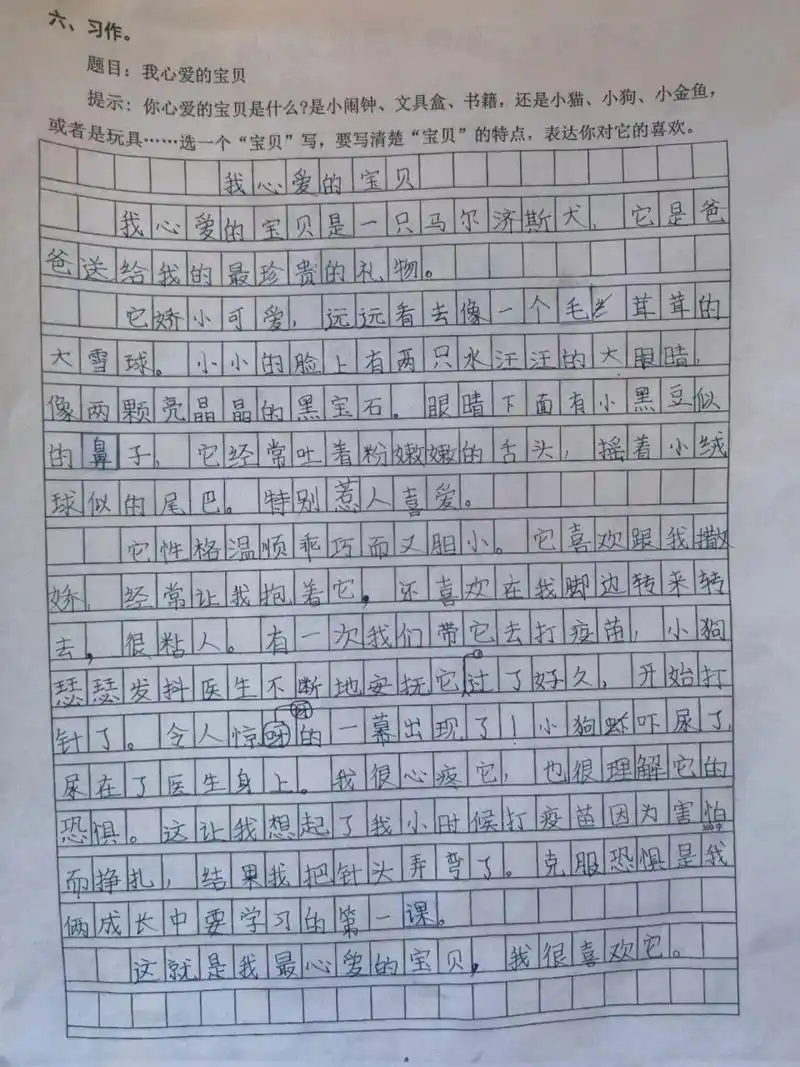 六、习作。
题目：我心爱的宝贝
提示：你心爱的宝贝是什么?是小闹钟、文具盒、书籍，还是小猫、小狗、小金鱼，
或者是玩具……选一个“宝贝”写，要写清楚“宝贝”的特点，表达你对它的喜欢。
我心爱的宝贝
我心爱的宝贝是一只马尔济斯犬，它是爸
爸送给我的最珍贵的礼物。
它娇小可爱，远远看去像一个毛茸茸的
大雪球。小小的脸上有两只水汪汪的大眼睛，
像两颗亮晶晶的黑宝石。眼睛下面有小黑豆似
的鼻子，它经常吐着粉嫩嫩的舌头，摇着小绒
球似的尾巴。特别惹人喜爱。
它性格温顺乖巧而又胆小。它喜欢跟我撒
娇，经常让我抱着它，还喜欢在我脚边转来转
去，很粘人。有一次我们带它去打疫苗，小狗
瑟瑟发抖医生不断地安抚它，过了好久，开始打
针了。令人惊讶的一幕出现了！小狗吓尿了，
尿在了医生身上。我很心疼它，也很理解它的
恐惧。这让我想起了我小时候打疫苗因为害怕
而挣扎，结果我把针头弄弯了。克服恐惧是我
俩成长中要学习的第一课。
这就是我最心爱的宝贝，我很喜欢它。